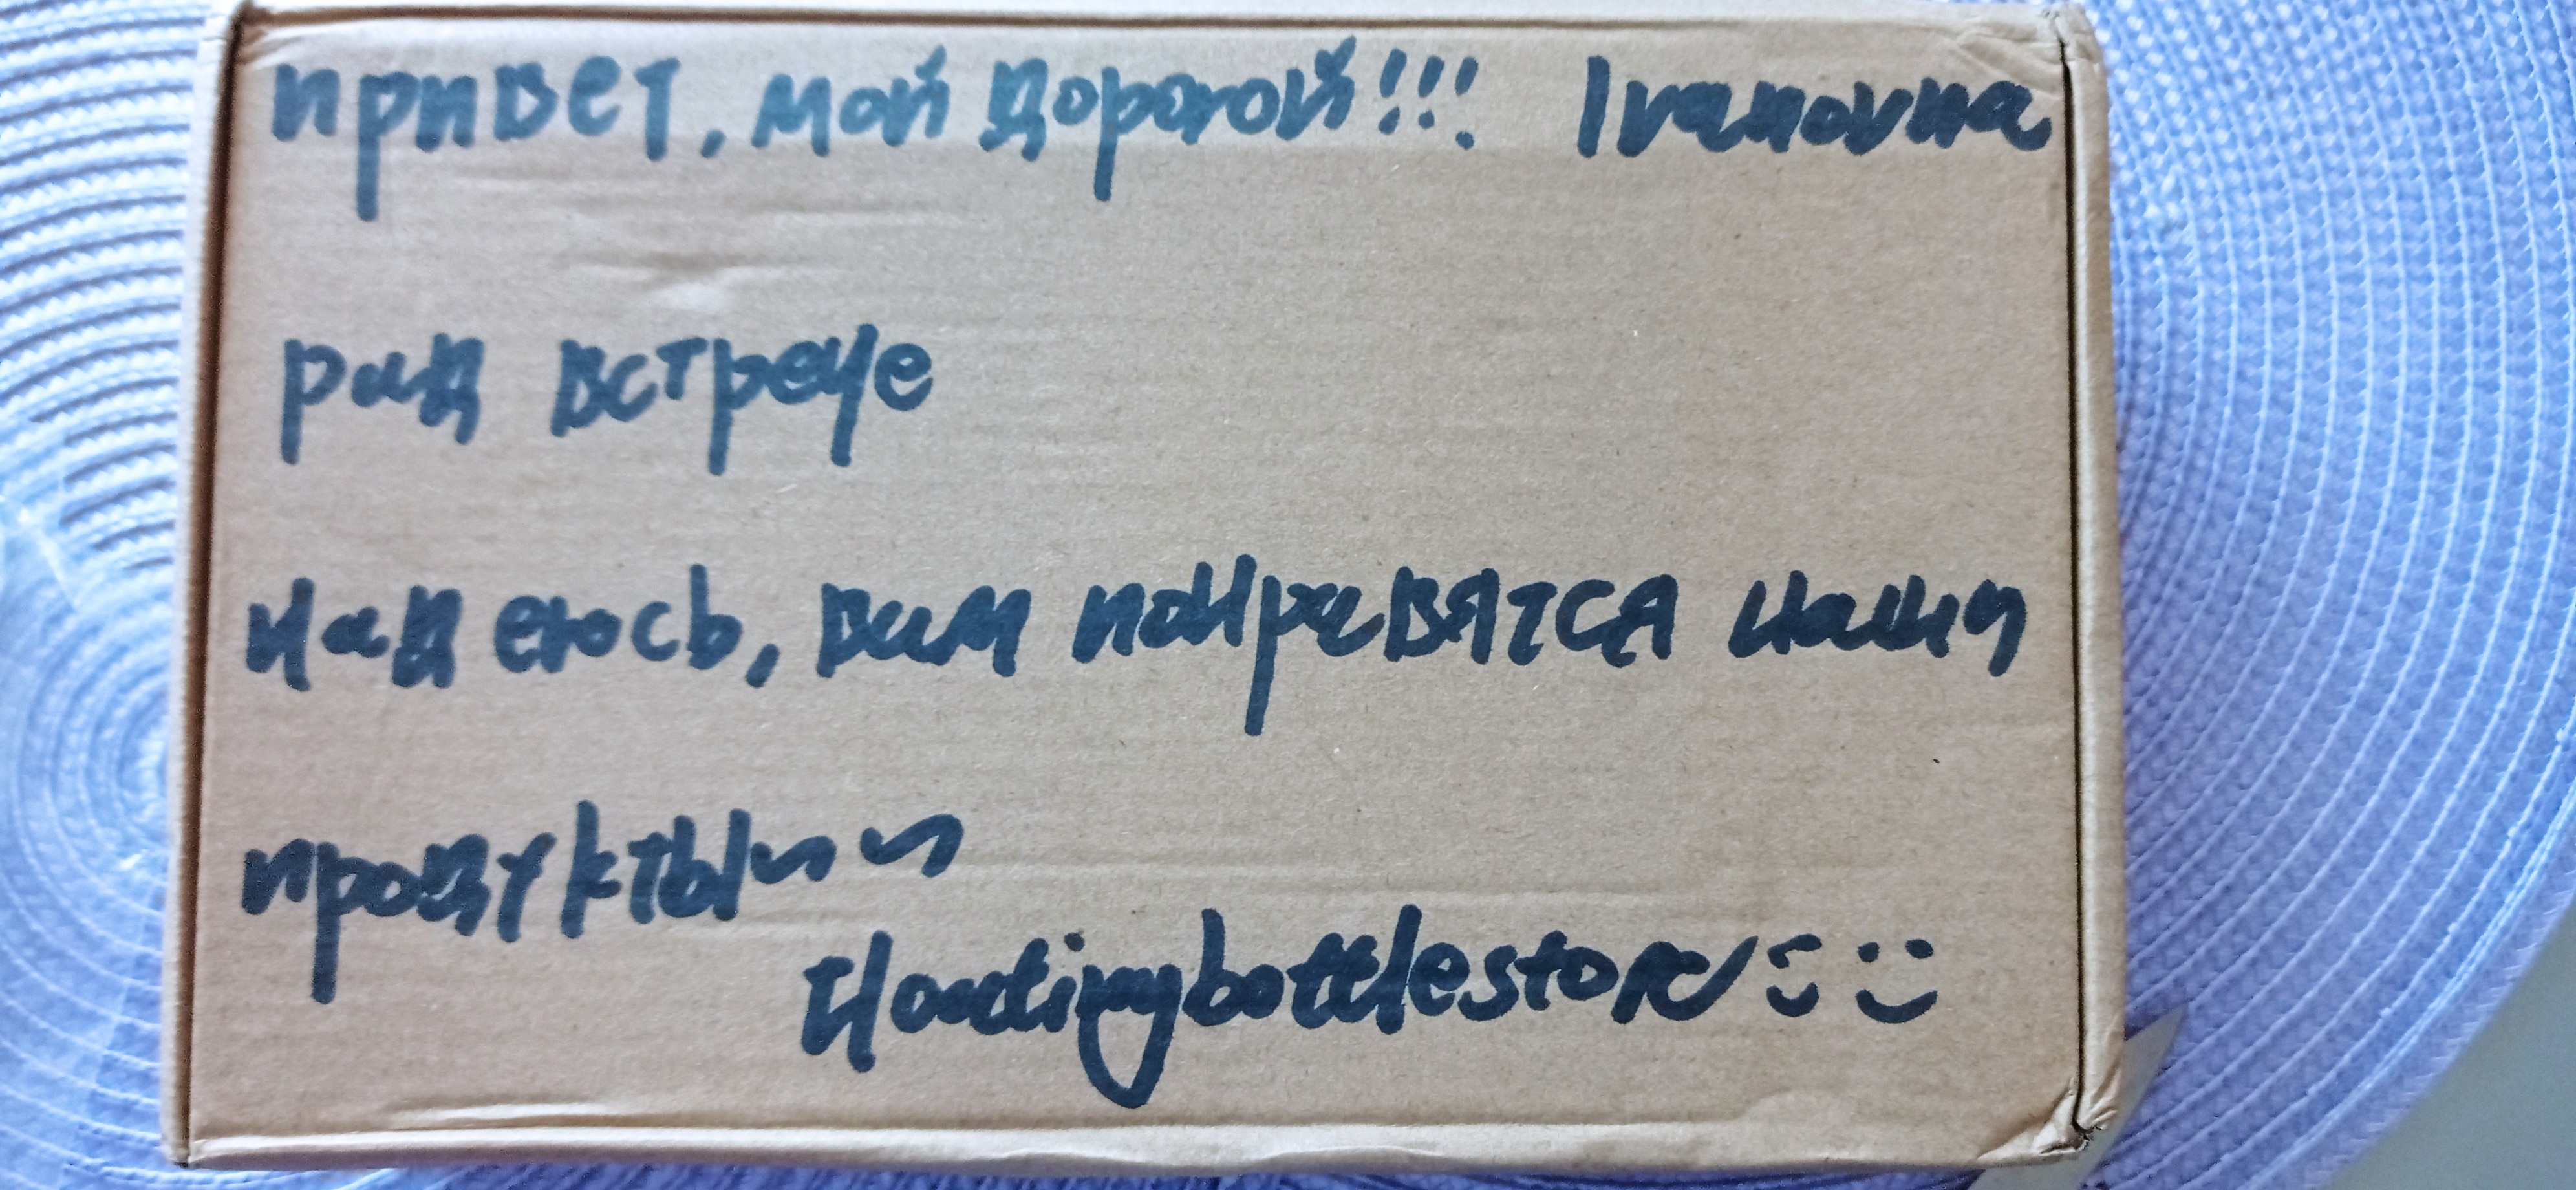 привет, мой дорогой!!! Ivanovna
рад встрече
надеюсь, вам понравятся наши
продукты~~
Floatingbottlestore